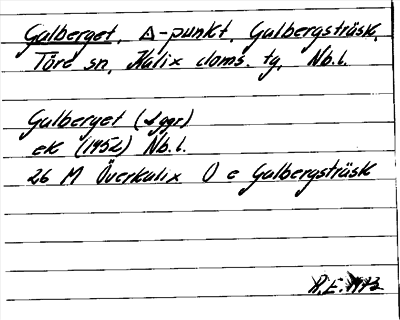 Galberget, Δ-punkt, Galbergsträsk,
Töre sn, Kalix doms. tg, Nb. l.
Galberget (2 ggr)
ek (1952) Nb. l.
26 M Överkalix O e Galbergsträsk
R.E. 1973